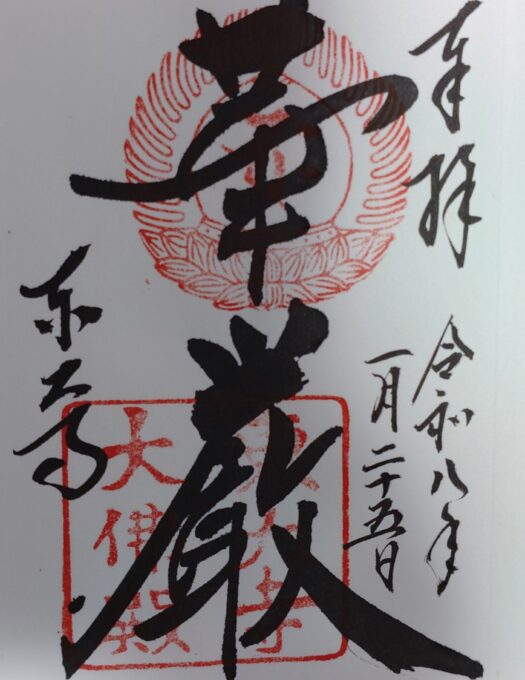 奉拝
令和八年
一月二十五日
華厳
東大寺
東大寺
大佛殿